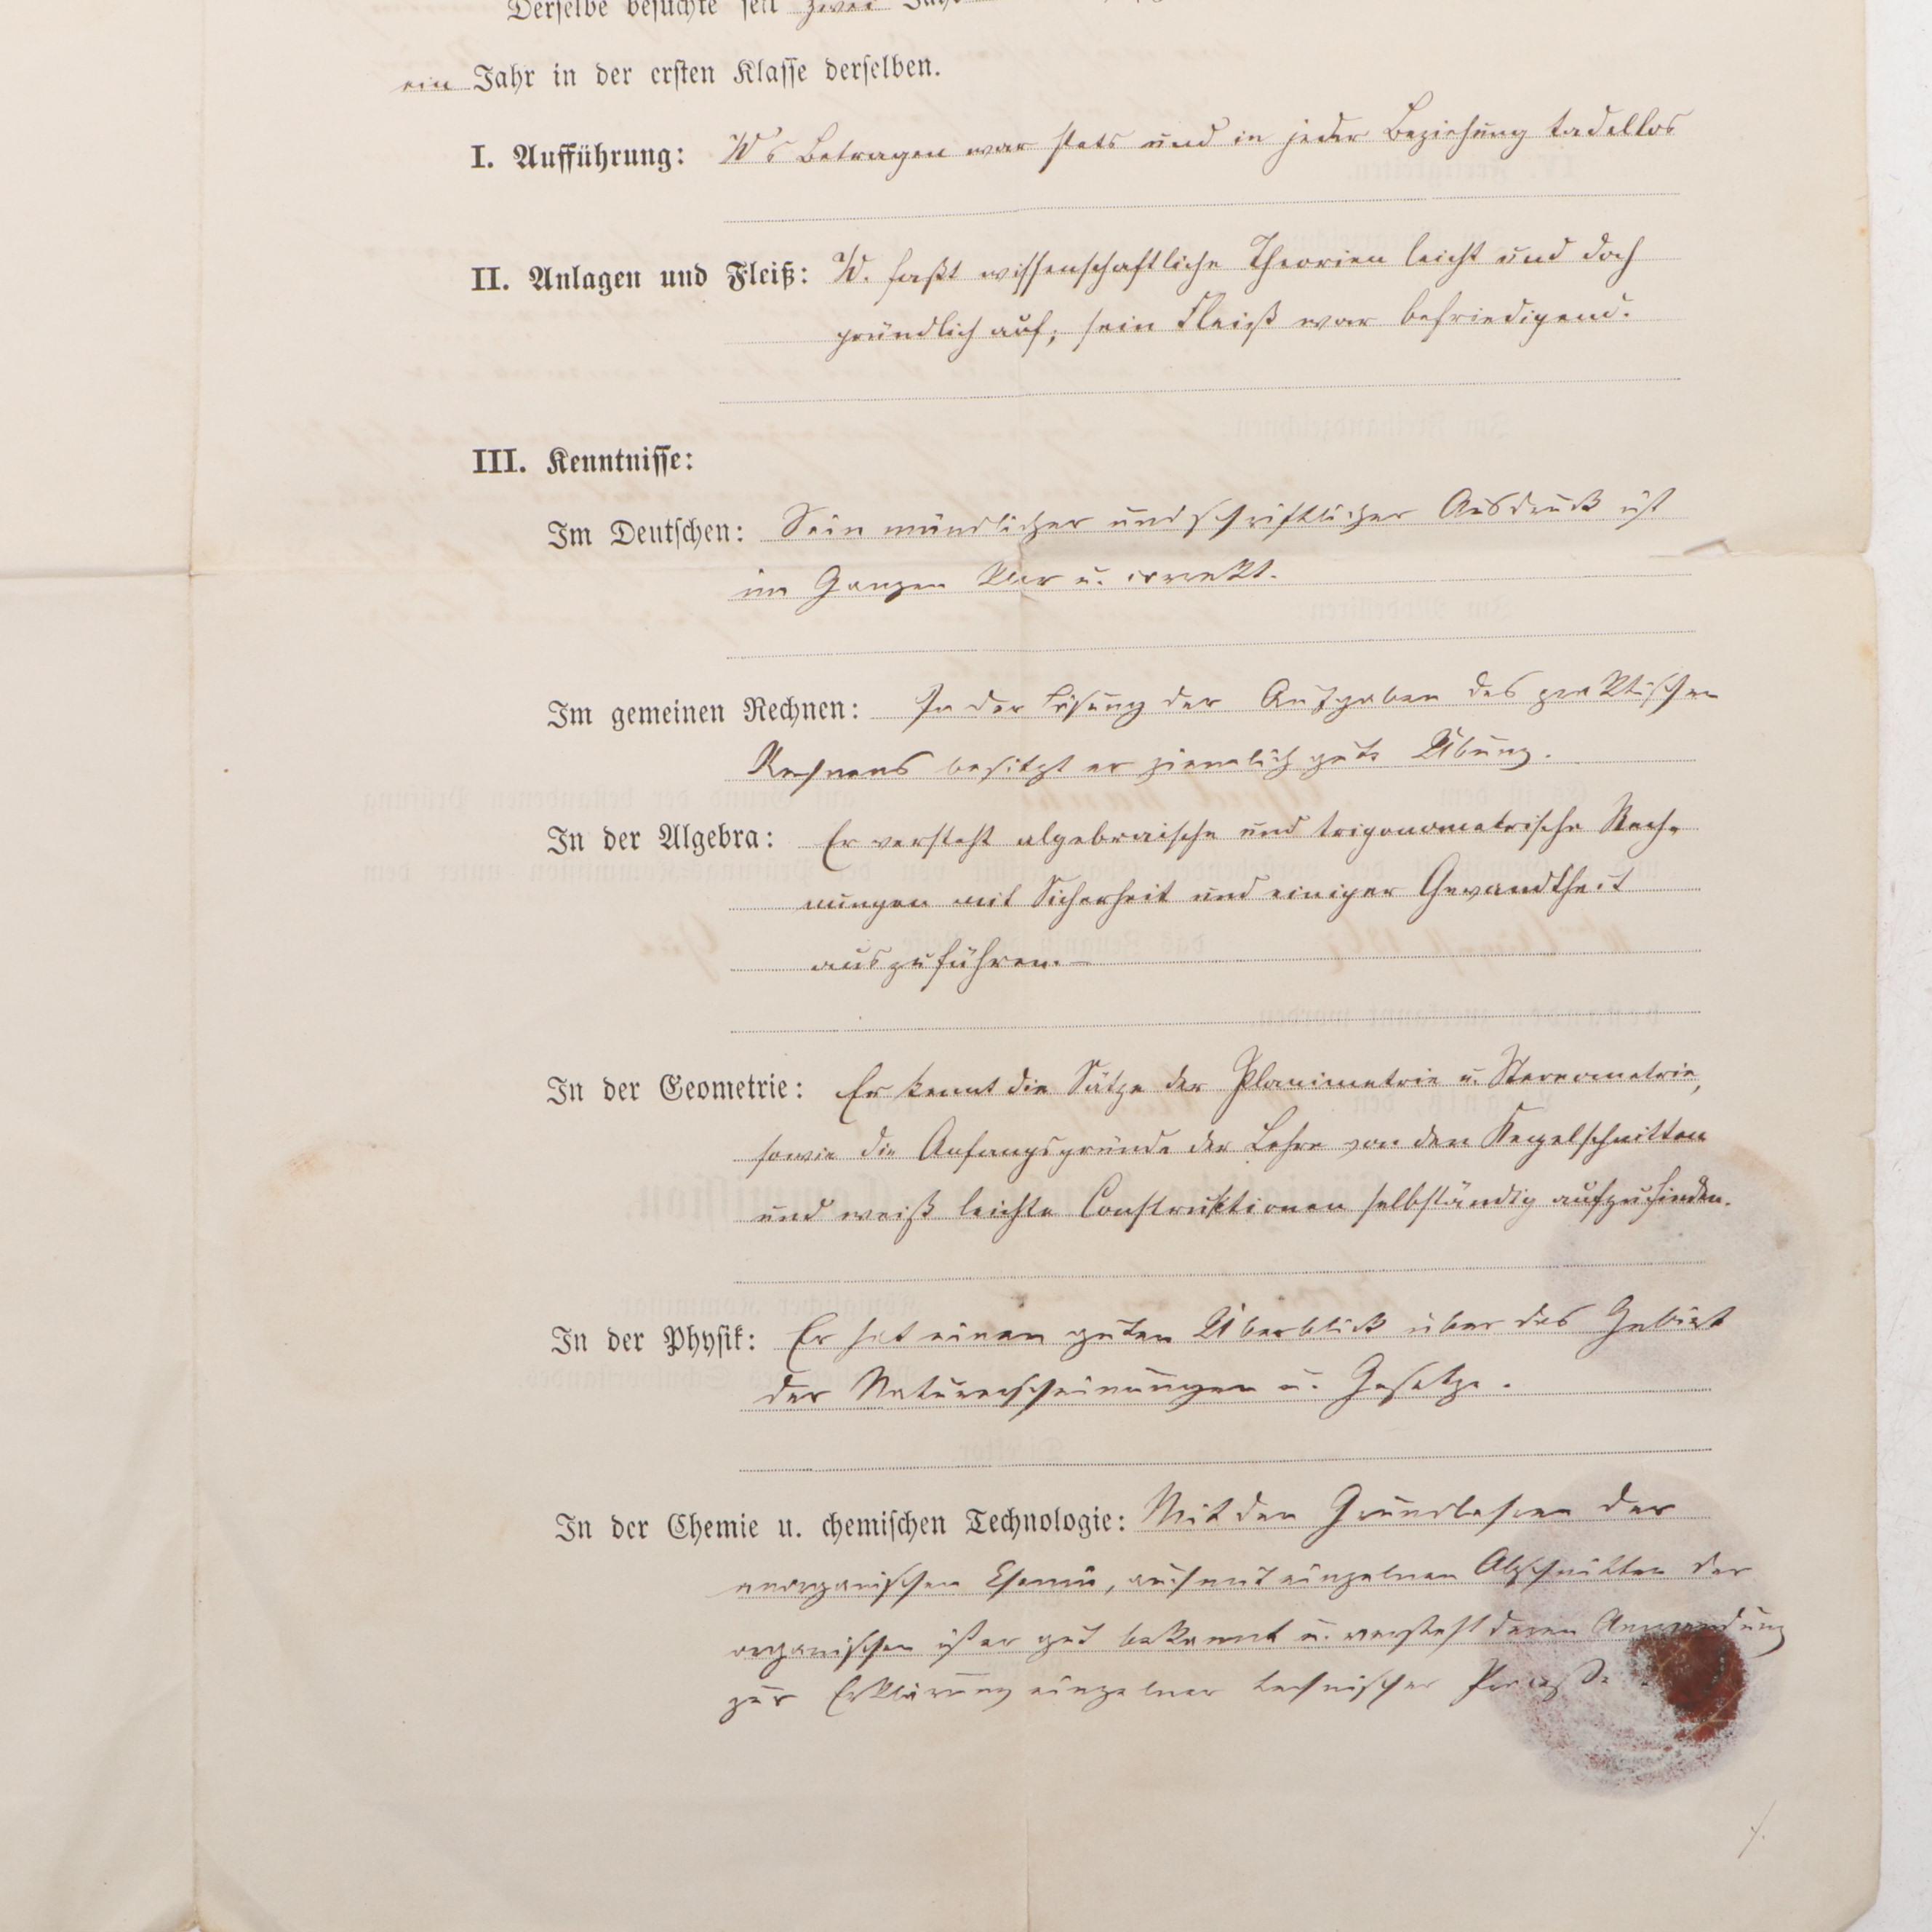 Derselbe besuchte seit zwei Jahr
ein Jahr in der ersten Klasse derselben.
I. Aufführung: W's Betragen war stets und in jeder Beziehung tadellos
II. Anlagen und Fleiß: W. faßt wissenschaftliche Theorien leicht und doch
gründlich auf; sein Fleiß war befriedigend.
III. Kenntnisse:
Im Deutschen: Sein mündlicher und schriftlicher Ausdruck ist
im Ganzen klar u. correkt.
Im gemeinen Rechnen: In der Lösung der Aufgaben des praktischen
Rechnens besitzt er ziemlich gute Übung.
In der Algebra: Er versteht algebraische und trigonometrische Rech-
nungen mit Sicherheit und einiger Gewandtheit
auszuführen.
In der Geometrie: Er kennt die Sätze der Planimetrie u. Stereometrie,
sowie die Anfangsgründe der Lehre von den Kegelschnitten
und weiß leichte Construktionen selbständig aufzufinden.
In der Physik: Er hat einen guten Überblick über das Gebiet
der Naturerscheinungen u. Gesetze.
In der Chemie u. chemischen Technologie: Mit den Grundlehren der
anorganischen Chemie, auch mit einzelnen Abschnitten der
organischen ist er gut bekannt u. versteht deren Anwendung
zur Erklärung einzelner technischer Processe